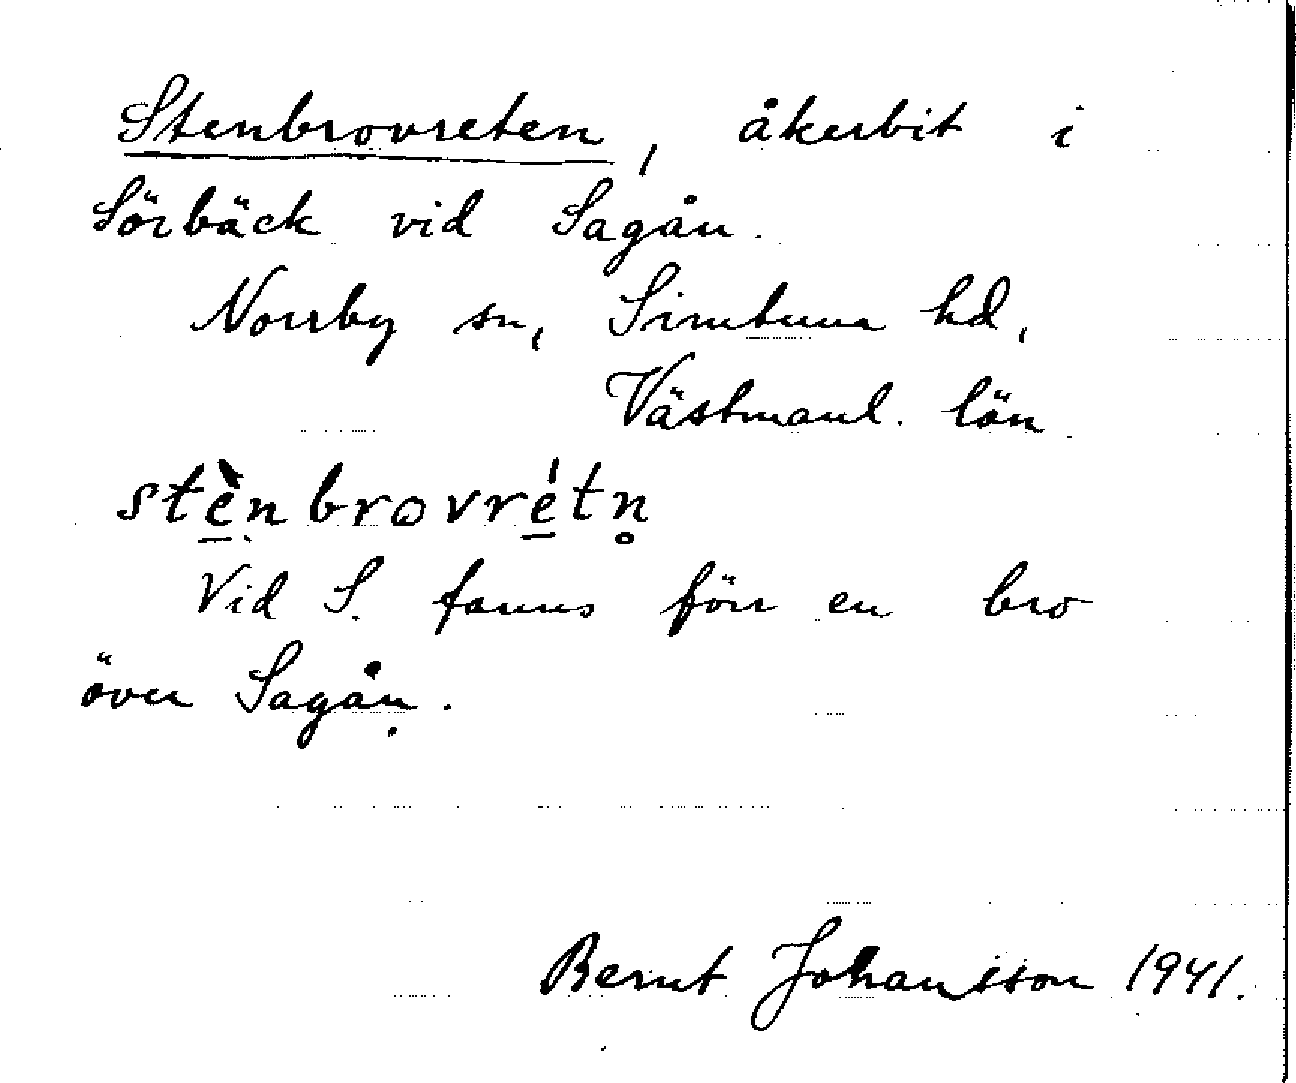 Stenbrovreten, åkerbit i
Sörbäck vid Sagån.
Norrby sn, Simtuna hd,
Västmanl. län
stè̠nbrovré̠tn̥
Vid S. fanns förr en bro
över Sagån.
Bernt Johansson 1941.